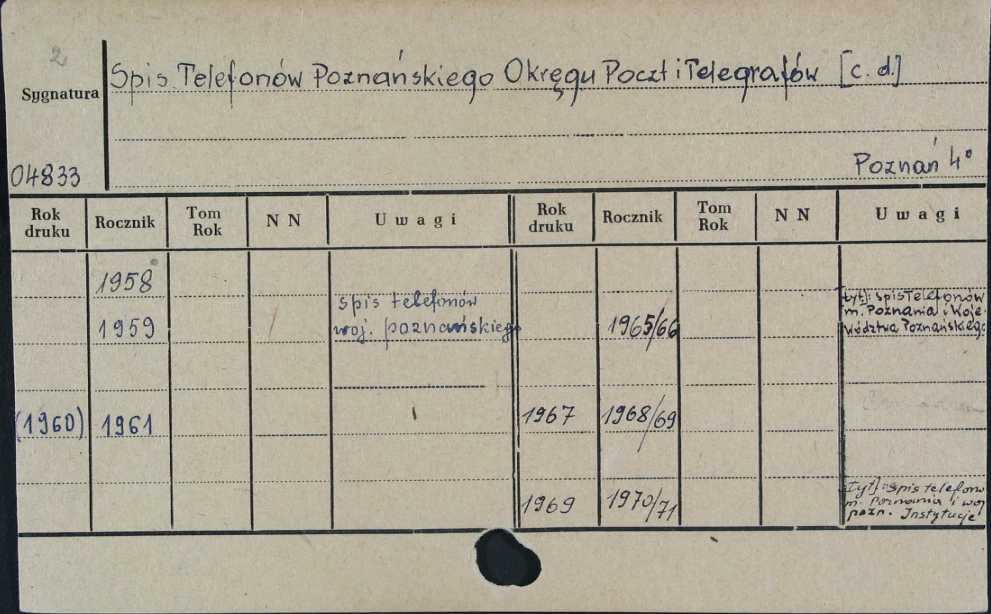 2
Spis Telefonów Poznańskiego Okręgu Poczt i Telegrafów [c. d.]
Sygnatura
04833
Poznań 4°
Rok druku Rocznik Tom Rok N N Uwagi Rok druku Rocznik Tom Rok N N Uwagi
1958
1959 spis telefonów woj. poznańskiego 1965/66 tyt: spis Telefonów m. Poznania i Województwa Poznańskiego
(1960) 1961 1967 1968/69
1969 1970/71 tyt: spis telefonów m. Poznania i woj pozn. Instytucje